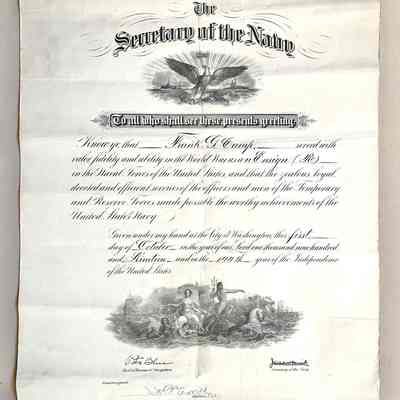 The
Secretary of the Navy
To all who shall see these presents greeting:
Know ye that Frank G. Camp, served with
valor, fidelity and ability in the World War as an Ensign
in the Naval Forces of the United States, and that the zealous, loyal,
devoted and efficient services of the officers and men of the Temporary
and Reserve Forces made possible the worthy achievements of the
United States Navy.
Given under my hand at the City of Washington, this first
day of October in the year of our Lord one thousand nine hundred
and Nineteen and in the 144th year of the Independence
of the United States.
Secretary of the Navy.